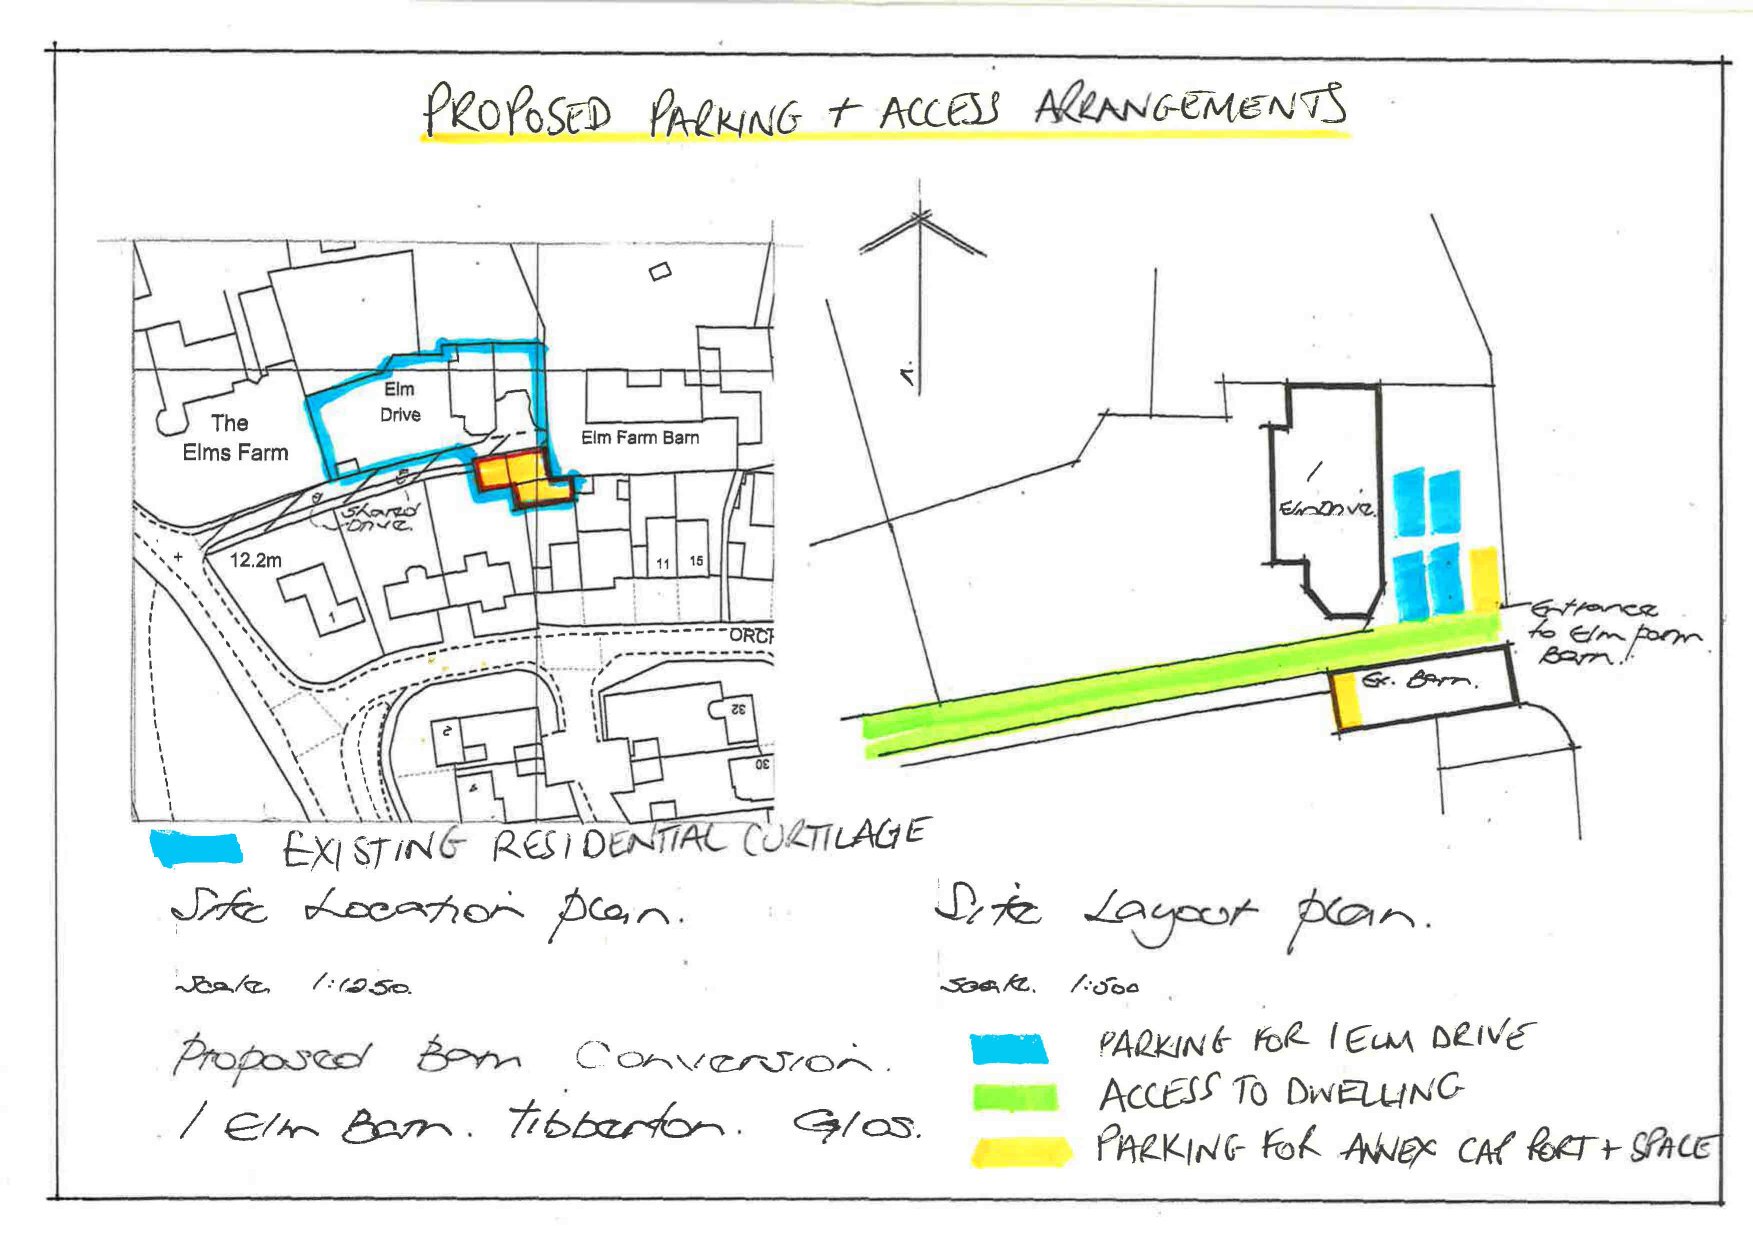 PROPOSED PARKING + ACCESS ARRANGEMENTS
Elm
Drive
The
Elms Farm
Elm Farm Barn
Shared
Drive.
12.2m
1
11
15
ORCH
2
4
32
30
n.
Elm Drive.
Entrance
to Elm Farm
Barn.
Ex. Barn.
EXISTING RESIDENTIAL CURTILAGE
Site Location plan.
Scale 1:1250.
Proposed Barn Conversion.
1 Elm Barn. Tibberton. Glos.
Site Layout plan.
Scale. 1:500
PARKING FOR 1 ELM DRIVE
ACCESS TO DWELLING
PARKING FOR ANNEX CAR PORT + SPACE